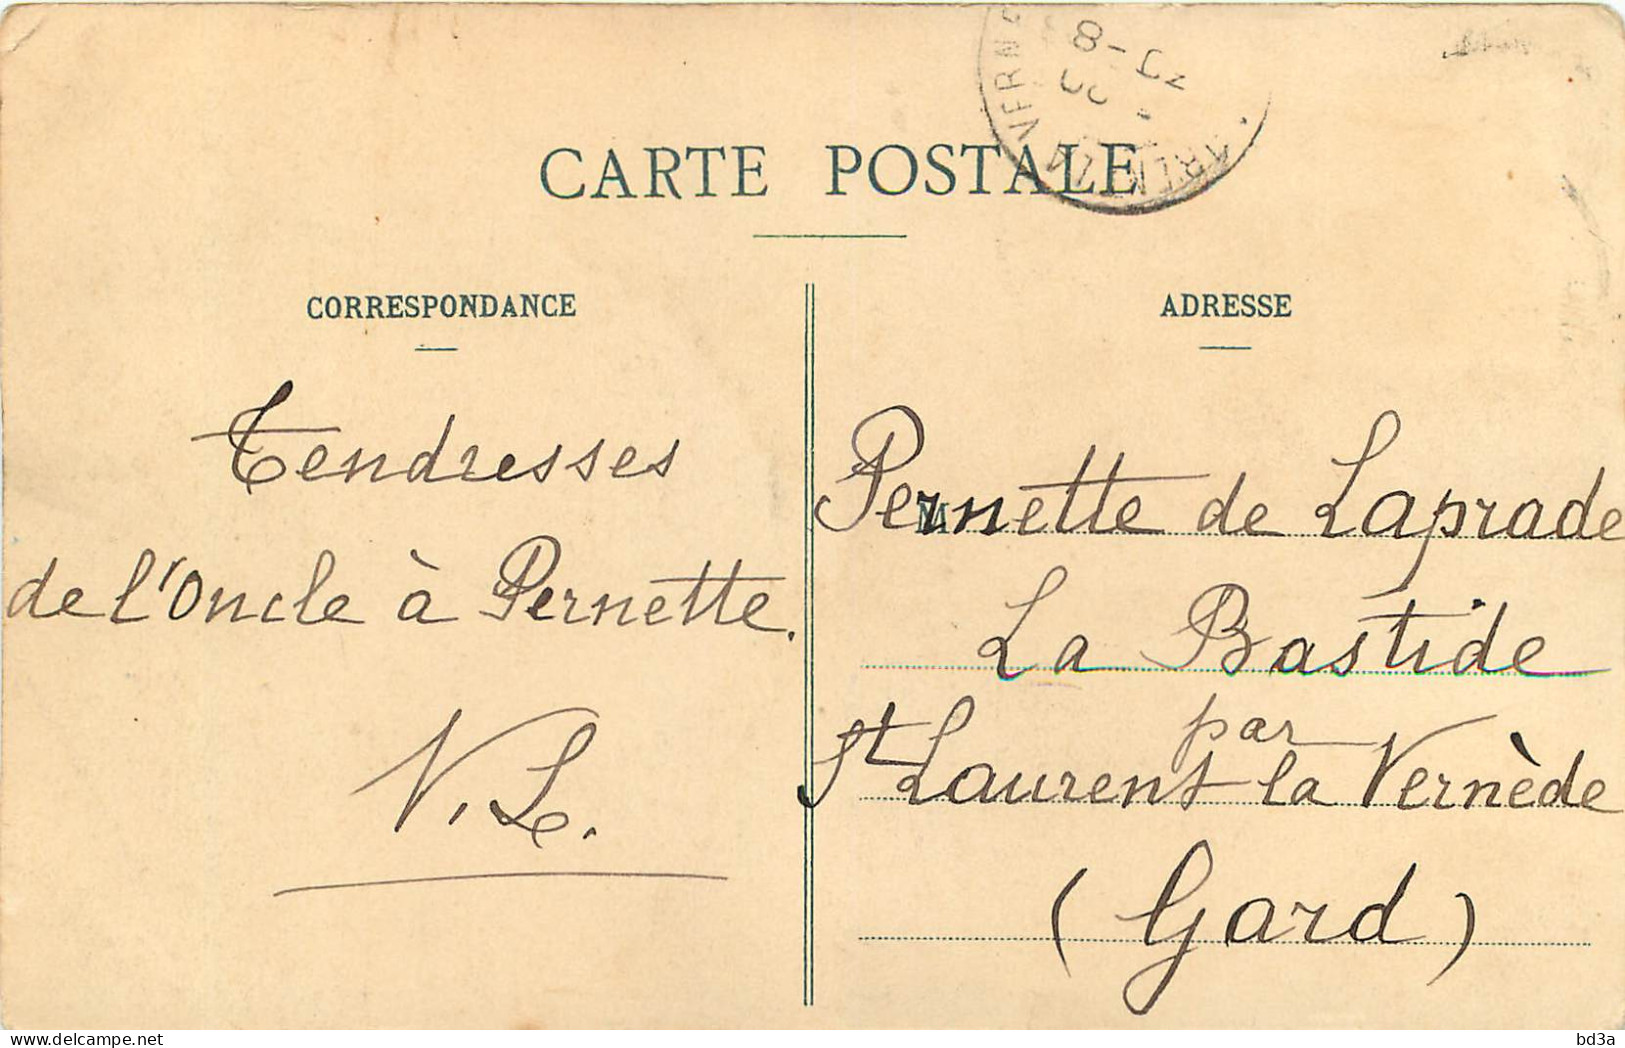 CARTE POSTALE
CORRESPONDANCE
Tendresses
de l'Oncle à Pernette.
V. L.
ADRESSE
M
Pernette de Laprade
La Bastide
par
St Laurent la Vernède
(Gard)
delcampe.net
bd3a